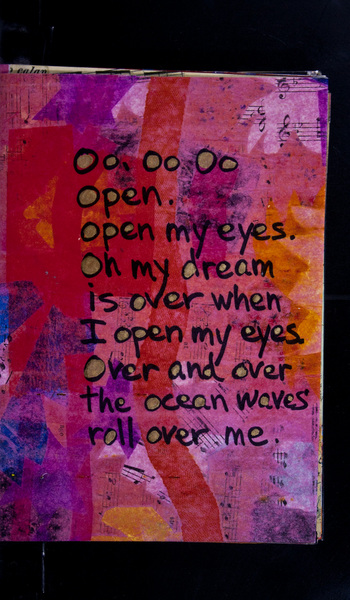 Oo. Oo Oo
open.
open my eyes.
Oh my dream
is over when
I open my eyes.
Over and over
the ocean waves
roll over me.